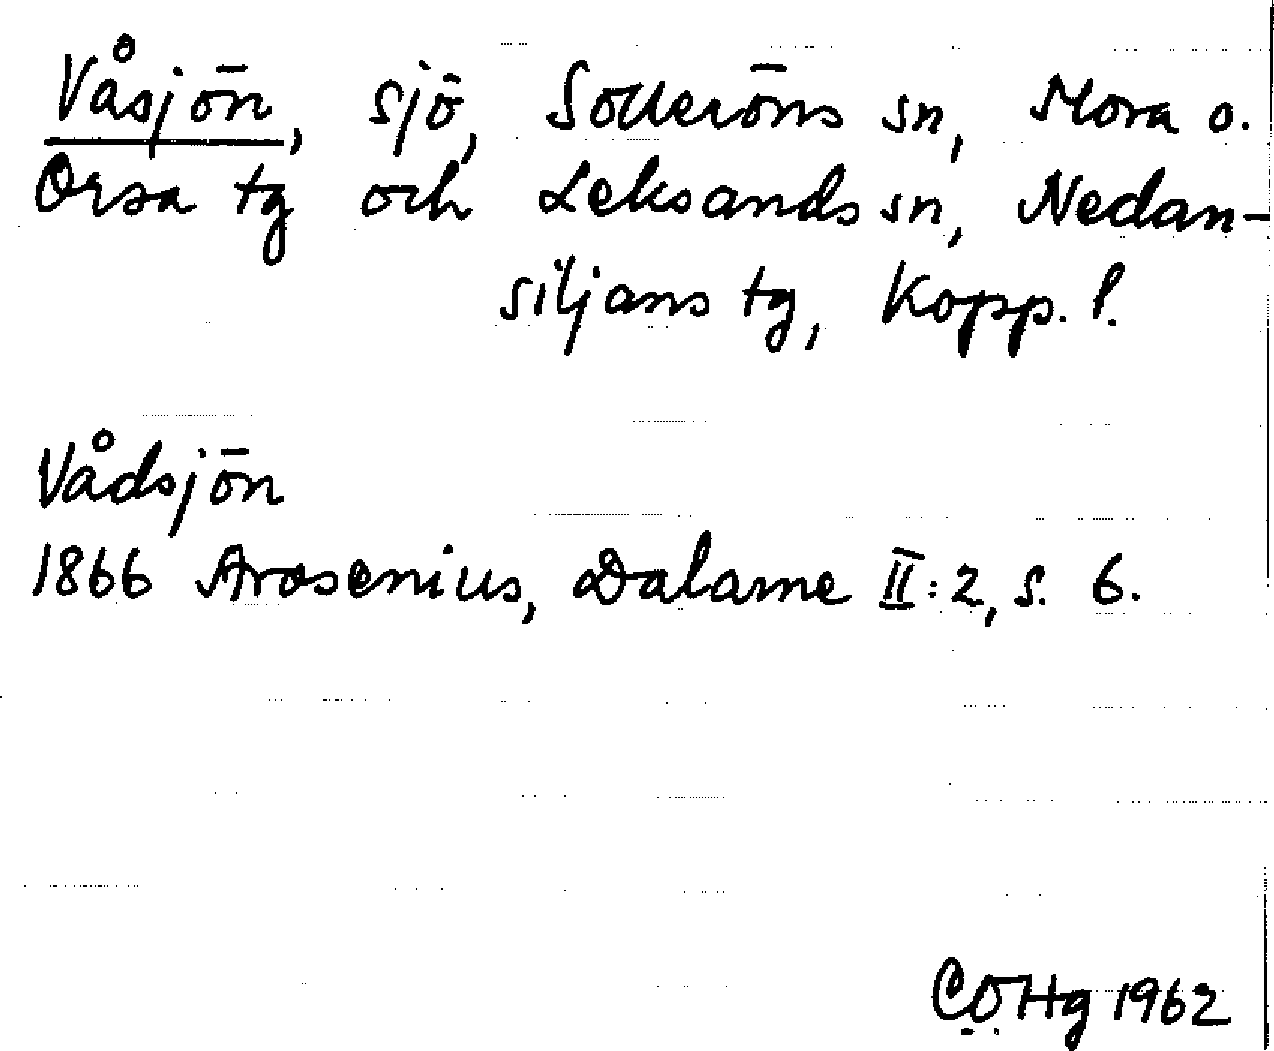 Våsjön, sjö, Solleröns sn, Mora o.
Orsa tg och Leksands sn, Nedan-
siljans tg, Kopp. l.
Vådsjön
1866 Arosenius, Dalarne II:2, s. 6.
CÖHg 1962